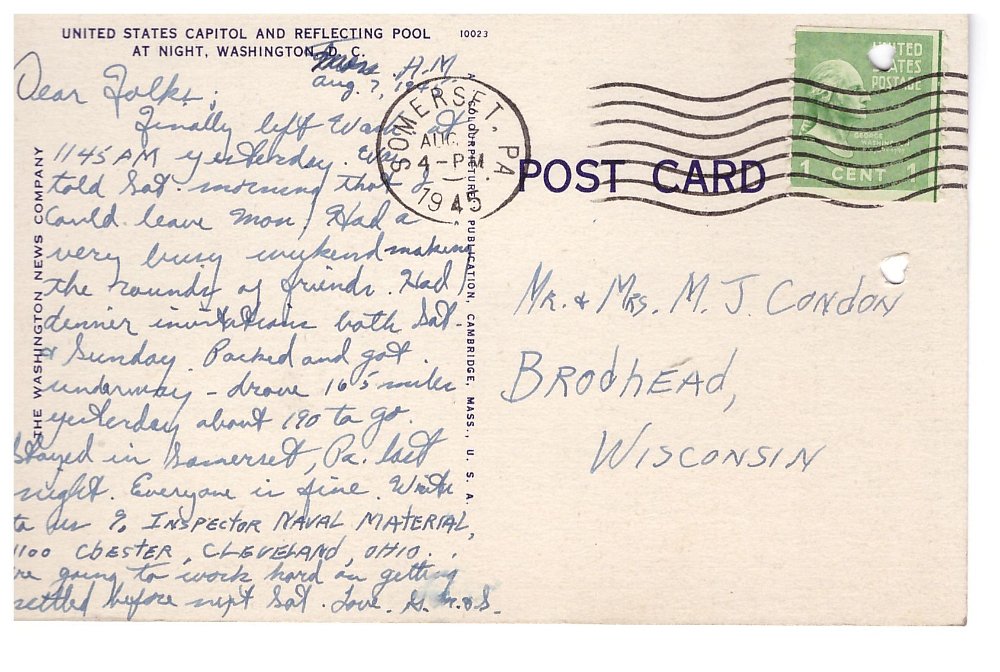 UNITED STATES CAPITOL AND REFLECTING POOL
AT NIGHT, WASHINGTON, D. C.
10023
A.M.
Aug. 7, 1945
Dear Folks;
Finally left Wash. at
1145 AM yesterday. Was
told Sat. morning that I
could leave Mon. Had a
very busy weekend making
the rounds of friends. Had
dinner invitations both Sat.
& Sunday. Packed and got
underway - drove 165 miles
yesterday about 190 to go.
Stayed in Somerset, Pa. last
night. Everyone is fine. Write
to us % INSPECTOR NAVAL MATERIAL,
1100 CHESTER, CLEVELAND, OHIO.
going to work hard on getting
settled before next Sat. Love.
THE WASHINGTON NEWS COMPANY
A COLOURPICTURE PUBLICATION, CAMBRIDGE, MASS., U. S. A.
SOMERSET, PA
AUG. 7
4-PM
1945
POST CARD
UNITED
STATES
POSTAGE
GEORGE WASHINGTON
1 CENT 1
MR. & MRS. M. J. CONDON
BRODHEAD,
WISCONSIN